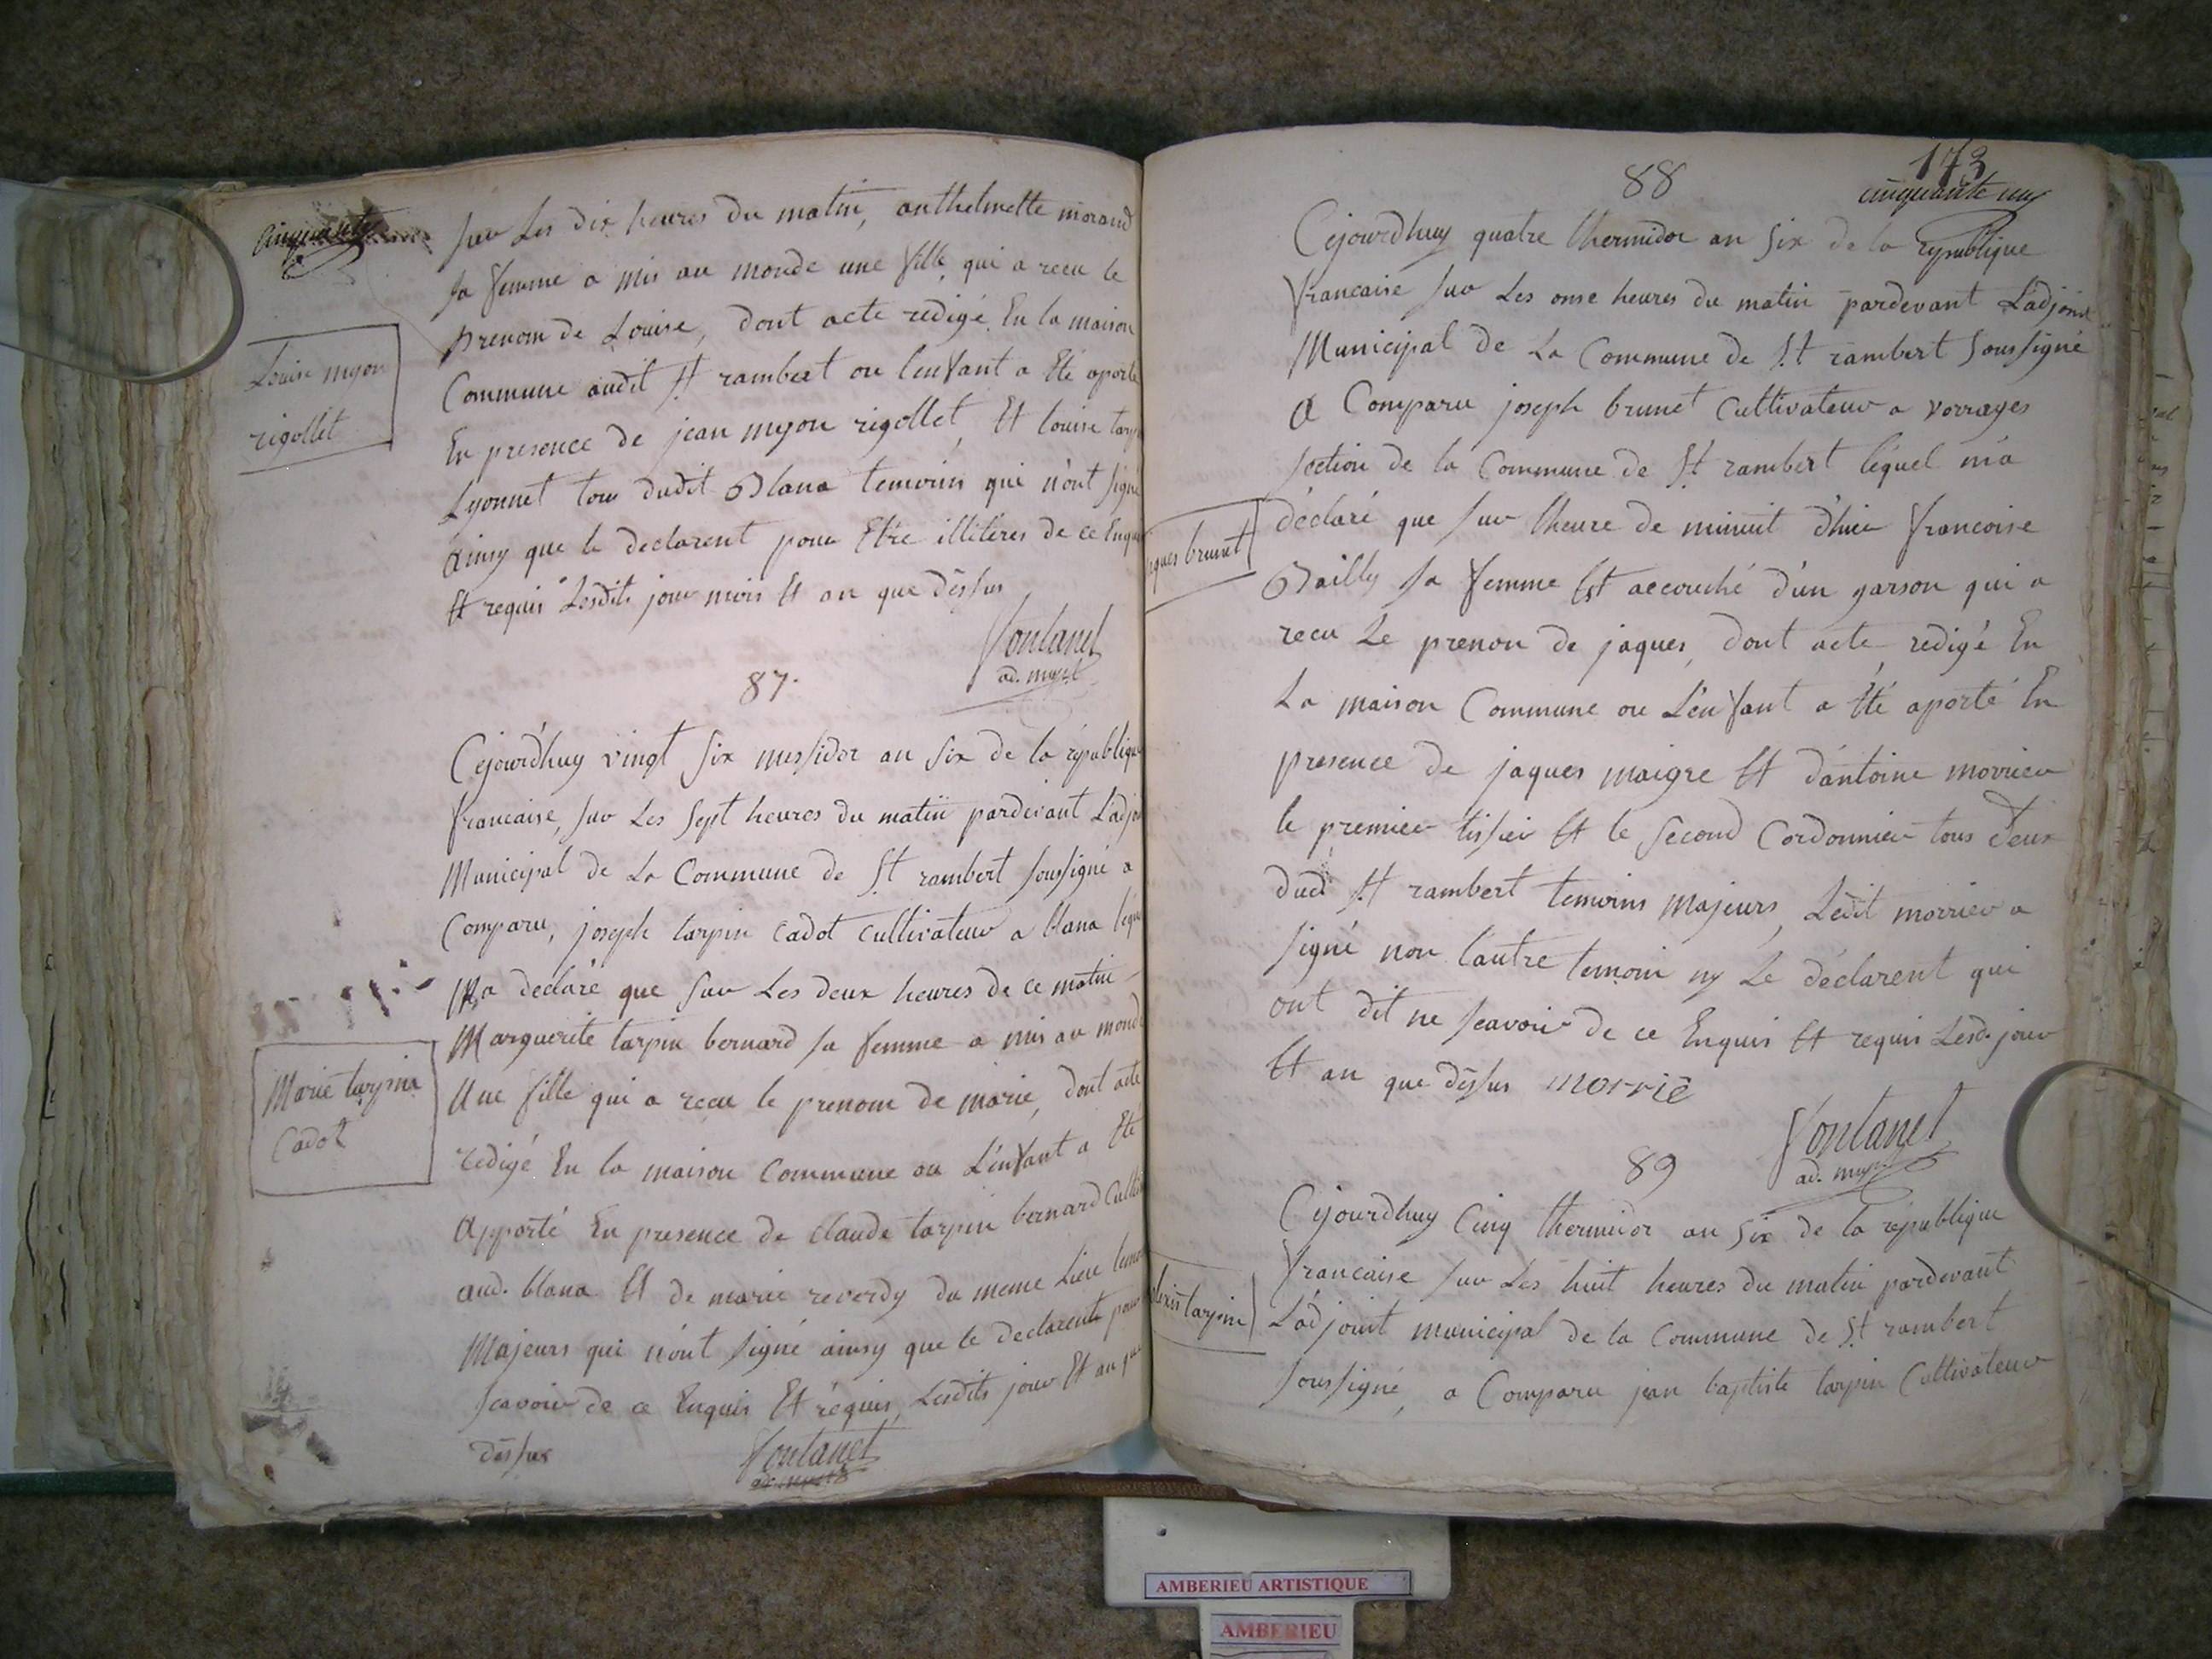 cinquante
Louise myon
rigollet
sur Les dix heures du matin, anthelmette morand
sa femme a mis au monde une fille qui a recu le
prenom de Louise, dont acte redigé En la maison
Commune audit St rambert ou l'enfant a Eté aporté
En presence de jean myon rigollet, Et louise
Lyonnet tous dudit Blana temoins qui n'ont signé
ainsy que le declarent pour Etre illiteres de ce Enquis
Et requis Lesdits jour mois Et an que dessus
fontanet
ad. mupl
87.
Marie tarpin
Cadot
Cejourdhuy vingt six messidor an six de la république
francaise, sur Les sept heures du matin pardevant L'adjoi
Municipal de La Commune de St rambert soussigné a
Comparu, joseph tarpin Cadot cultivateur a blana lequ
Ma declaré que sur Les deux heures de ce matin
Marguerite tarpin bernard sa femme a mis au monde
Une fille qui a recu le prenom de marie, dont acte
redigé En la maison Commune ou L'enfant a Eté
Apporté En presence de Claude tarpin bernard Culti
aud. blana Et de marie reverdy du meme Lieu temo
Majeurs qui n'ont signé ainsy que le declarent pour
scavoir de ce Enquis Et réquis, Lesdits jour Et an que
dessus
fontanet
173
cinquante un
88
Cejourdhuy quatre thermidor an six de la république
francaise sur Les onse heures du matin pardevant L'adjoint
Municipal de La Commune de St rambert soussigné
a Comparu joseph brunet Cultivateur a vorages
section de la Commune de St rambert léquel m'a
ques brunet
déclaré que sur lheure de minuit d'hier francoise
Bailly sa femme Est accouché d'un garson qui a
recu Le prenon de jaques, dont acte redigé En
La maison Commune ou L'enfant a Eté aporté En
presence de jaques maigre Et d'antoine morrier
le premier tissier Et le second Cordonnier tous deux
dud St rambert temoins majeurs, Ledit morrier a
signé non l'autre temoin ny Le déclarent qui
ont dit ne scavoir de ce Enquis Et requis Lesd. jour
Et an que dessus morrié
fontanet
ad. mupl
89
Cejourdhuy Cinq thermidor an six de la république
francaise sur Les huit heures du matin pardevant
lexis tarpin
L'adjoint municipal de la Commune de St rambert
soussigné, a Comparu jean baptiste tarpin Cultivateur
AMBERIEU ARTISTIQUE
AMBERIEU